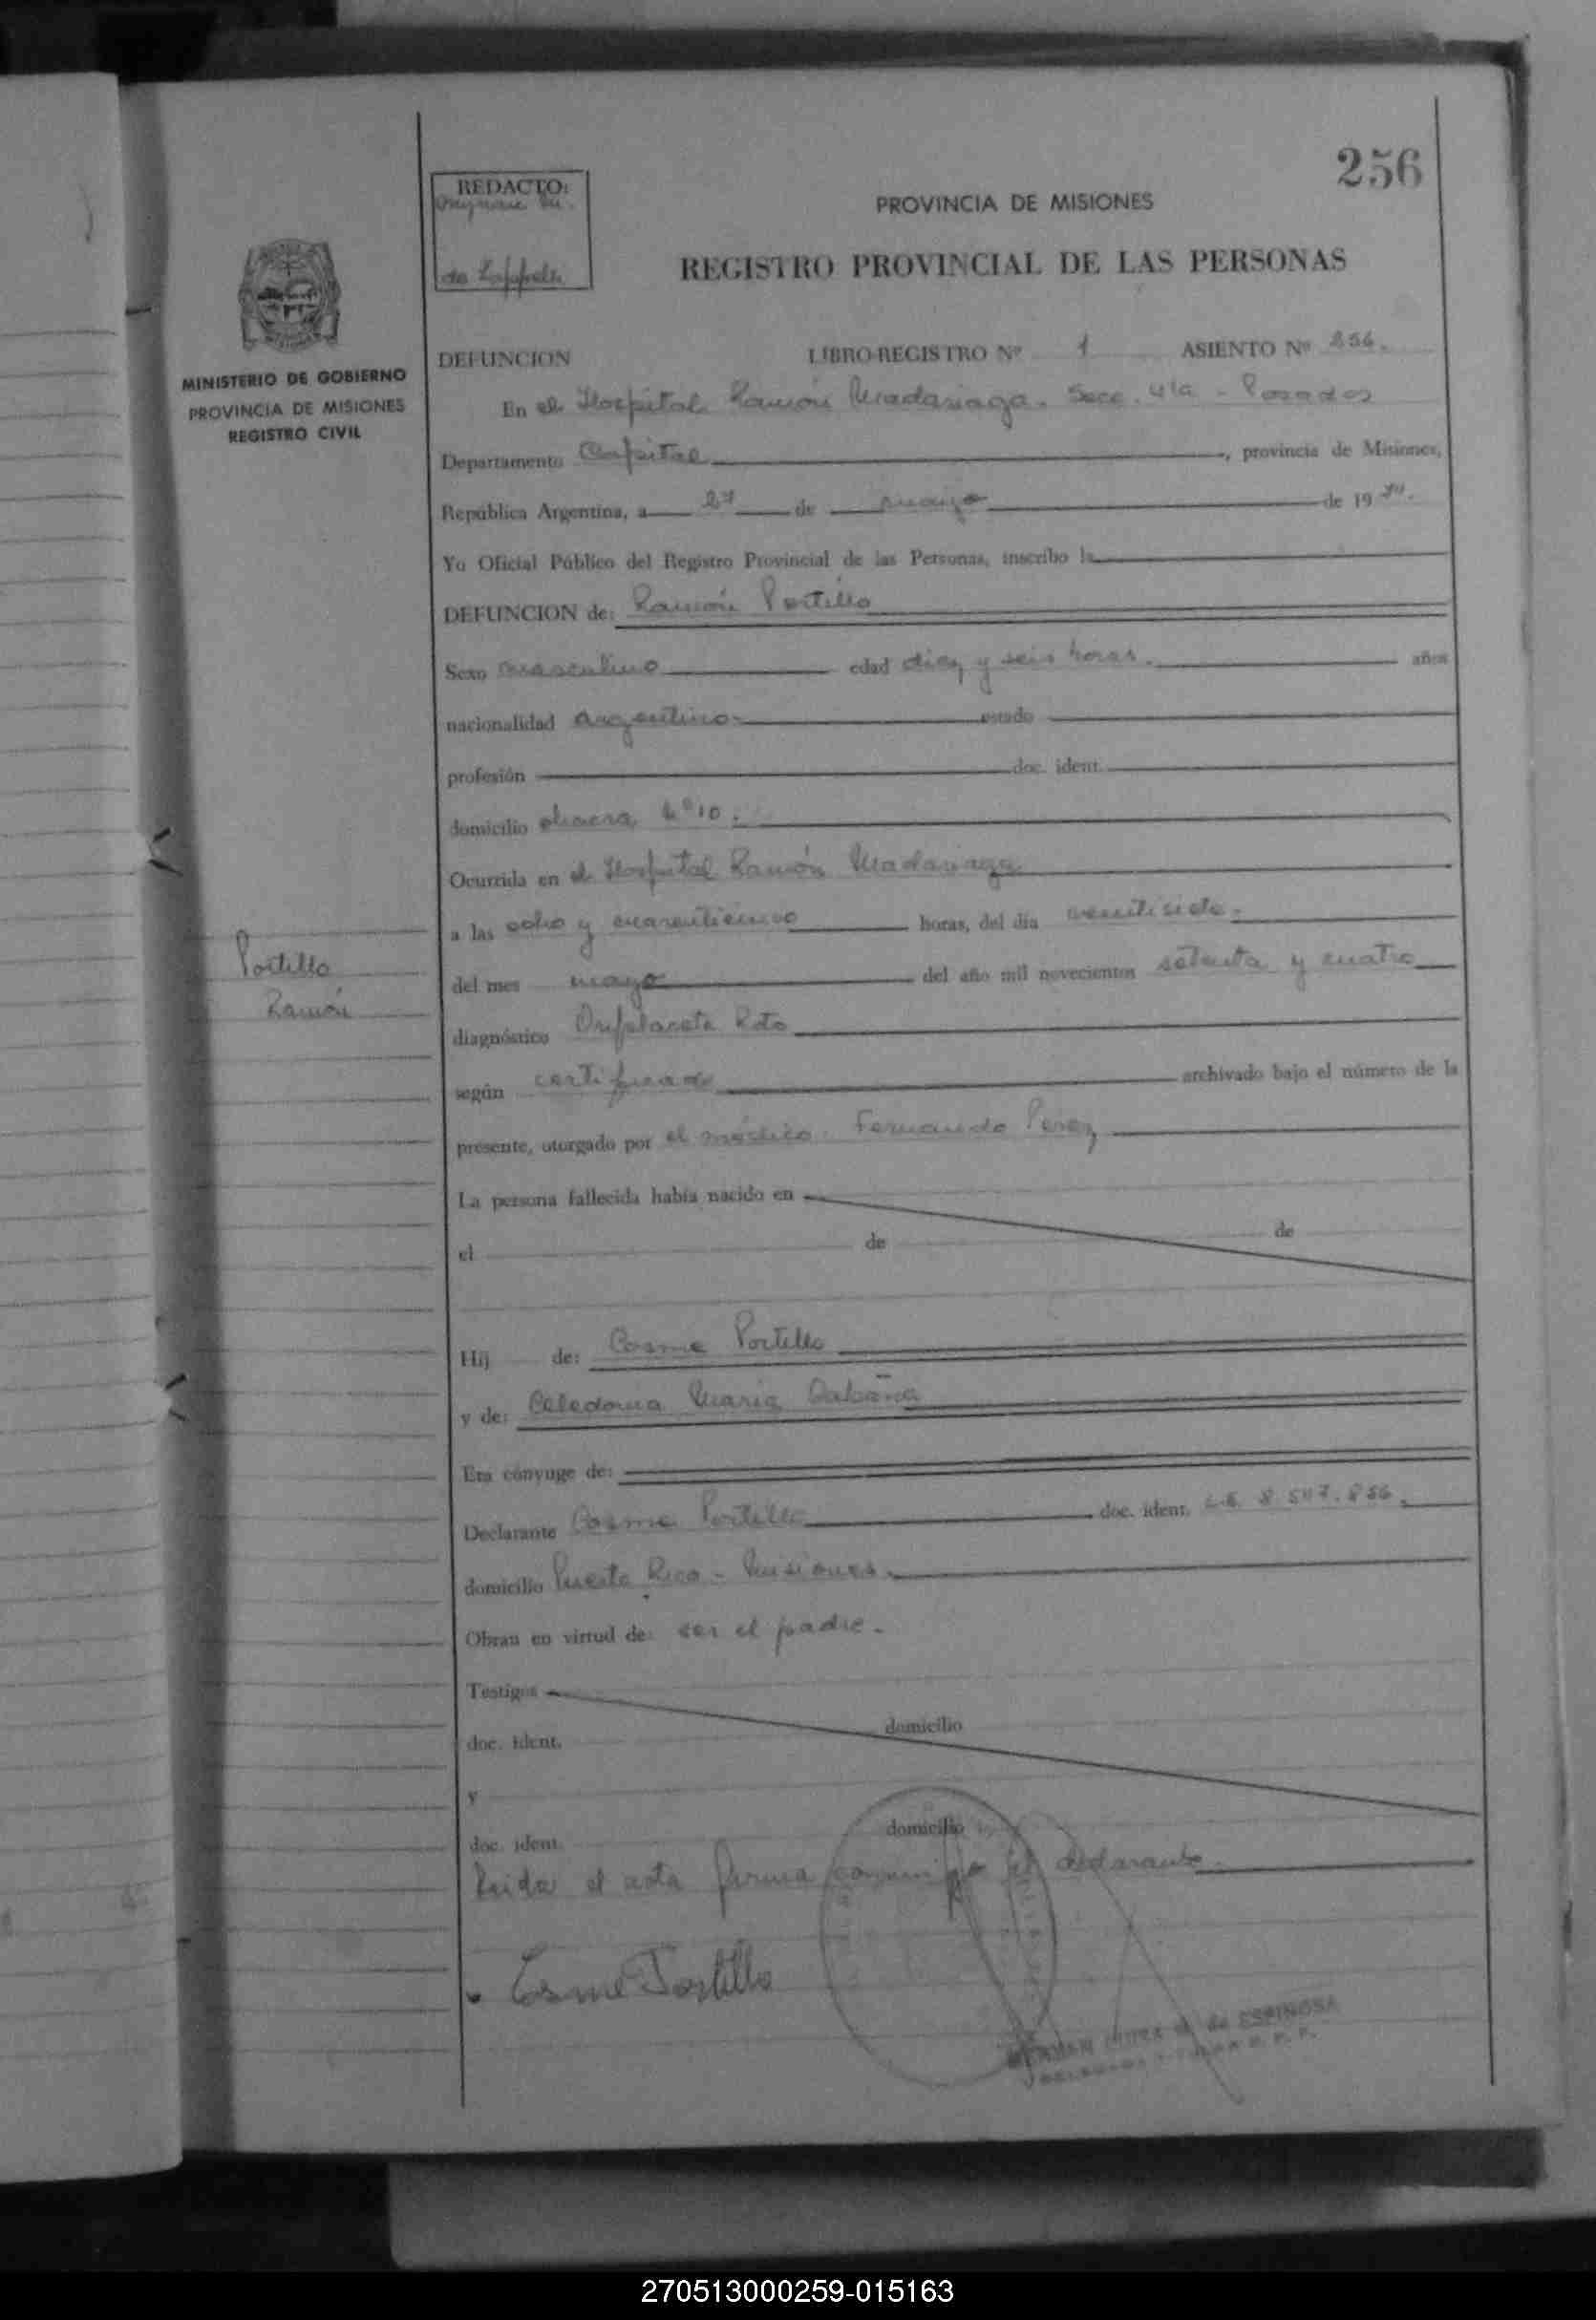 256
REDACTO:
PROVINCIA DE MISIONES
REGISTRO PROVINCIAL DE LAS PERSONAS
MINISTERIO DE GOBIERNO
PROVINCIA DE MISIONES
REGISTRO CIVIL
DEFUNCION LIBRO-REGISTRO Nº 1 ASIENTO Nº 256.
En el Hospital Ramón Madariaga. Secc. 4ta - Posadas
Departamento Capital, provincia de Misiones,
República Argentina, a 27 de mayo de 1974.
Yo Oficial Público del Registro Provincial de las Personas, inscribo la
DEFUNCION de: Ramón Portillo
Sexo masculino edad diez y seis horas. años
nacionalidad argentino estado
profesión doc. ident.
domicilio chacra
Ocurrida en el Hospital Ramón Madariaga
a las ocho y cuarenticinco horas, del día veintisiete.
del mes mayo del año mil novecientos setenta y cuatro
Portillo
Ramón
diagnóstico Roto
según certificado archivado bajo el número de la
presente, otorgado por el médico. Fernando Perez
La persona fallecida había nacido en
el de de
Hij de: Cosme Portillo
y de: Celedonia Maria
Era cónyuge de:
Declarante Cosme Portillo doc. ident. L.E. 8.547.856.
domicilio Puerto Rico - Misiones.
Obran en virtud de: ser el padre.
Testigos
doc. ident. domicilio
y
doc. ident. domicilio
Leida el acta firma conmigo el declarante.
Cosme Portillo
de ESPINOSA
270513000259-015163